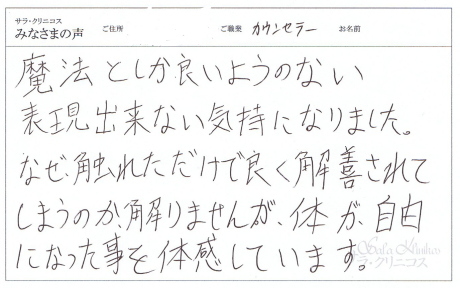 サラ・クリニコス
みなさまの声 ご住所 ご職業 カウンセラー お名前
魔法としか良いようのない
表現出来ない気持になりました。
なぜ、触れただけで良く解善されて
しまうのか、解りませんが、体が、自由
になった事を体感しています。
Sala Klinikos
サラ・クリニコス